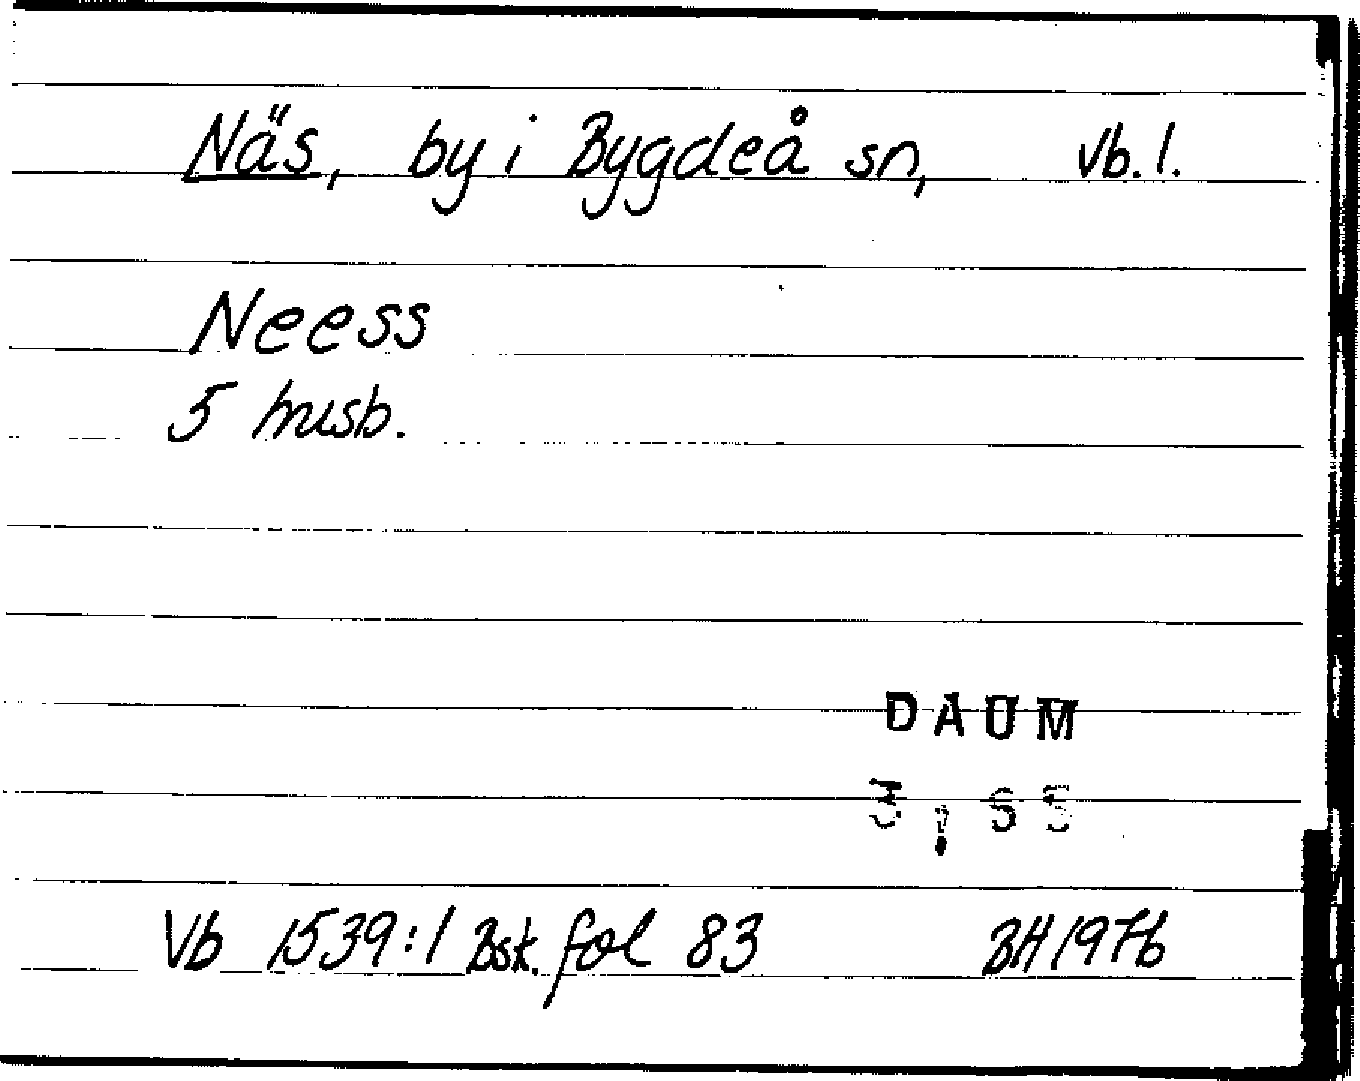 Näs, by i Bygdeå sn, Vb. l.
Neess
5 husb.
DAUM
Vb 1539:1 Bsk. fol 83 BH 1976